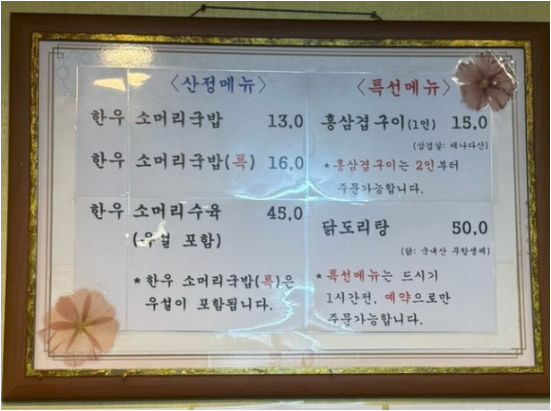 〈산정메뉴〉
한우 소머리국밥 13.0
한우 소머리국밥(특) 16.0
한우 소머리수육 45.0
(우설 포함)
* 한우 소머리국밥(특)은
우설이 포함됩니다.
〈특선메뉴〉
홍삼겹구이(1인) 15.0
(삼겹살: 캐나다산)
* 홍삼겹구이는 2인부터
주문가능합니다.
닭도리탕 50.0
(닭: 국내산 무항생제)
* 특선메뉴는 드시기
1시간전, 예약으로만
주문가능합니다.